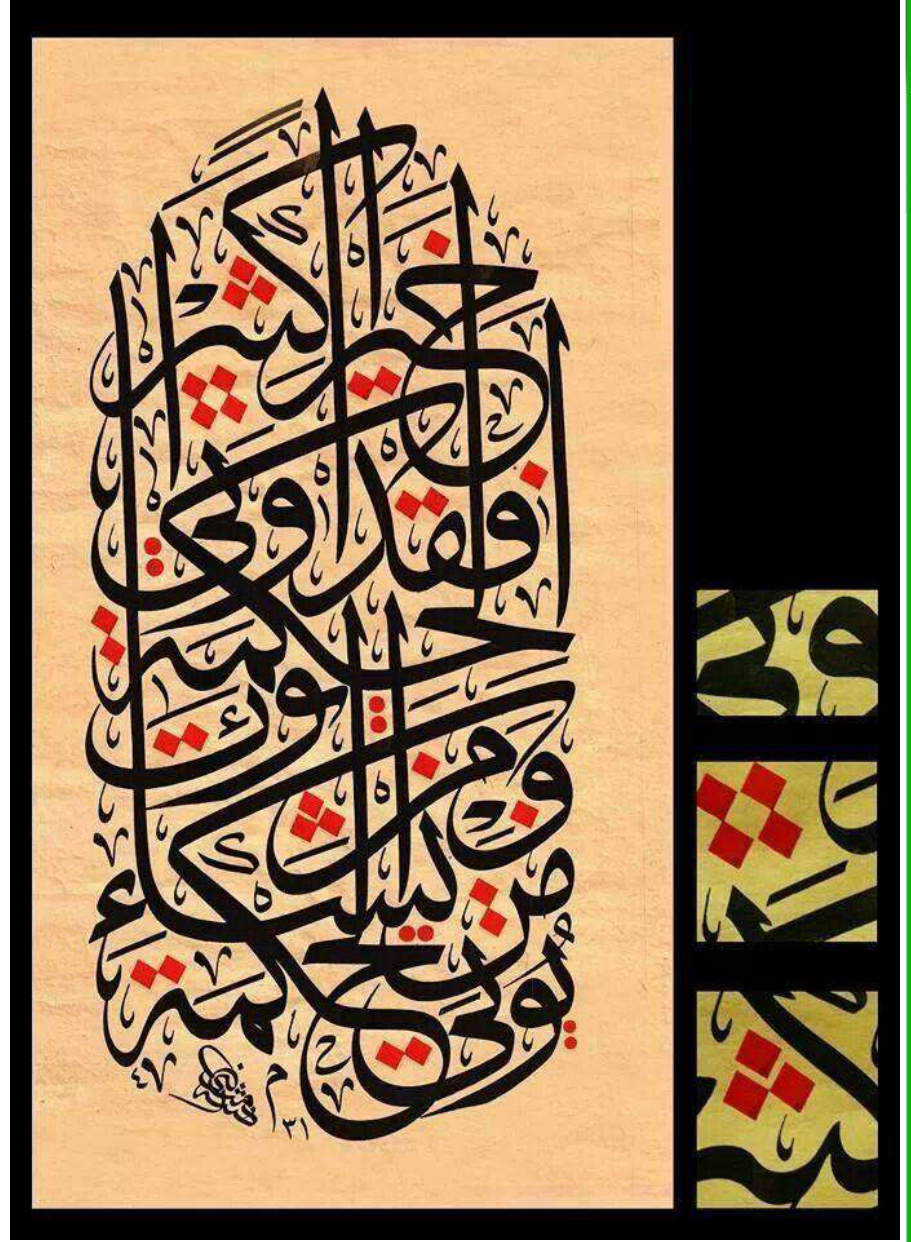 يؤتي الحكمة
من يشاء
ومن يؤت
الحكمة
فقد اوتي
خيرا كثيرا